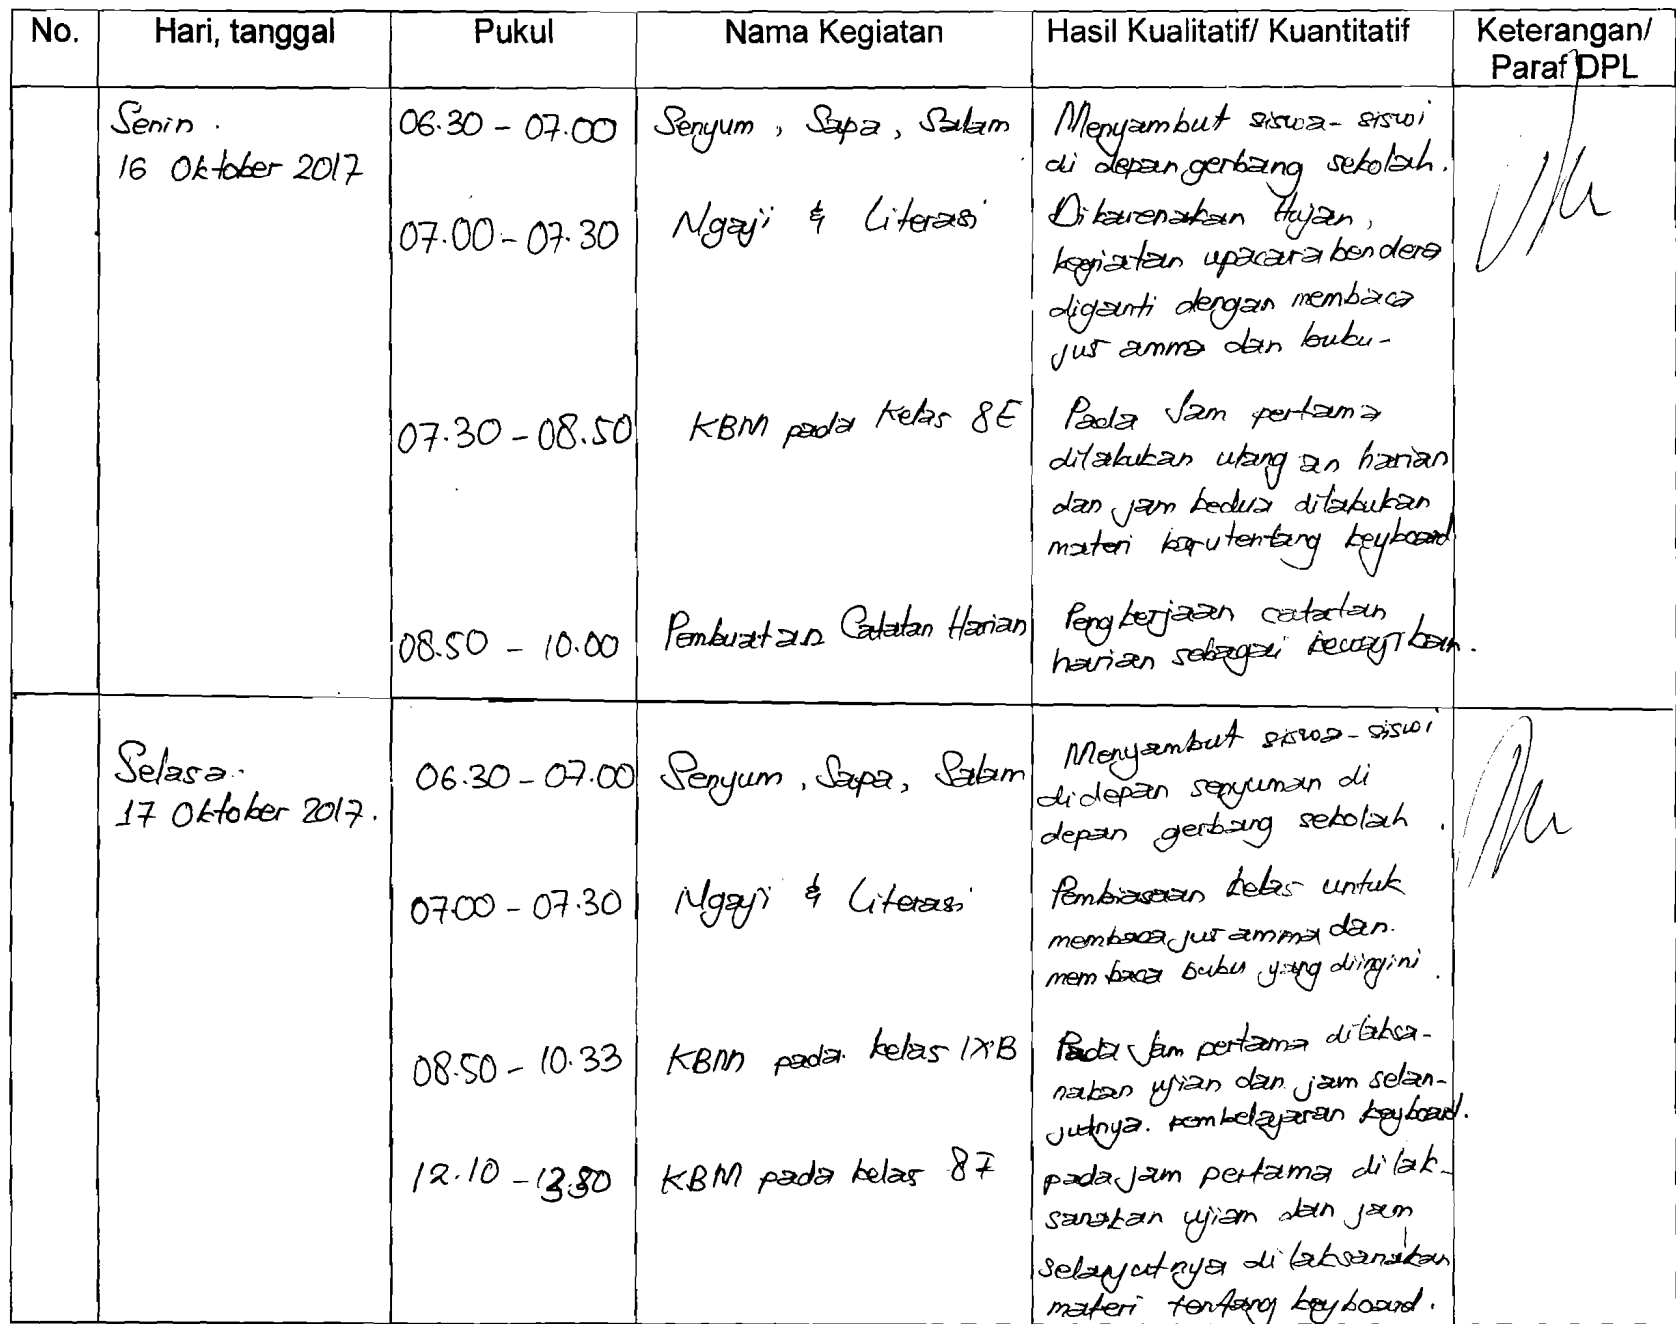 No. Hari, tanggal Pukul Nama Kegiatan Hasil Kualitatif/ Kuantitatif Keterangan/
Paraf DPL
Senin . 06.30 - 07.00 Senyum , Sapa , Salam Menyambut siswa-siswi
16 Oktober 2017 di depan gerbang sekolah.
07.00 - 07.30 Ngaji & Literasi Dikarenakan Hujan,
kegiatan upacara bendera
diganti dengan membaca
jus amma dan buku-
07.30 - 08.50 KBM pada Kelas 8E Pada Jam pertama
dilakukan ulang an harian
dan jam kedua dilakukan
materi baru tentang keyboard
08.50 - 10.00 Pembuatan Catatan Harian Pengkerjaan catatan
harian sebagai kewajiban.
Selasa. 06.30 - 07.00 Senyum , Sapa, Salam Menyambut siswa-siswi
17 Oktober 2017. didepan senyuman di
depan gerbang sekolah .
07.00 - 07.30 Ngaji & Literasi Pembiasaan kelas untuk
membaca jus amma dan.
membaca buku yang diingini.
08.50 - 10.33 KBM pada kelas IXB Pada Jam pertama dilaksa-
nakan ujian dan jam selan-
jutnya. pembelajaran keyboard.
12.10 - KBM pada kelas 8F pada jam pertama dilak-
sanakan ujiam dan jam
selanjutnya dilaksanakan
materi tentang keyboard.